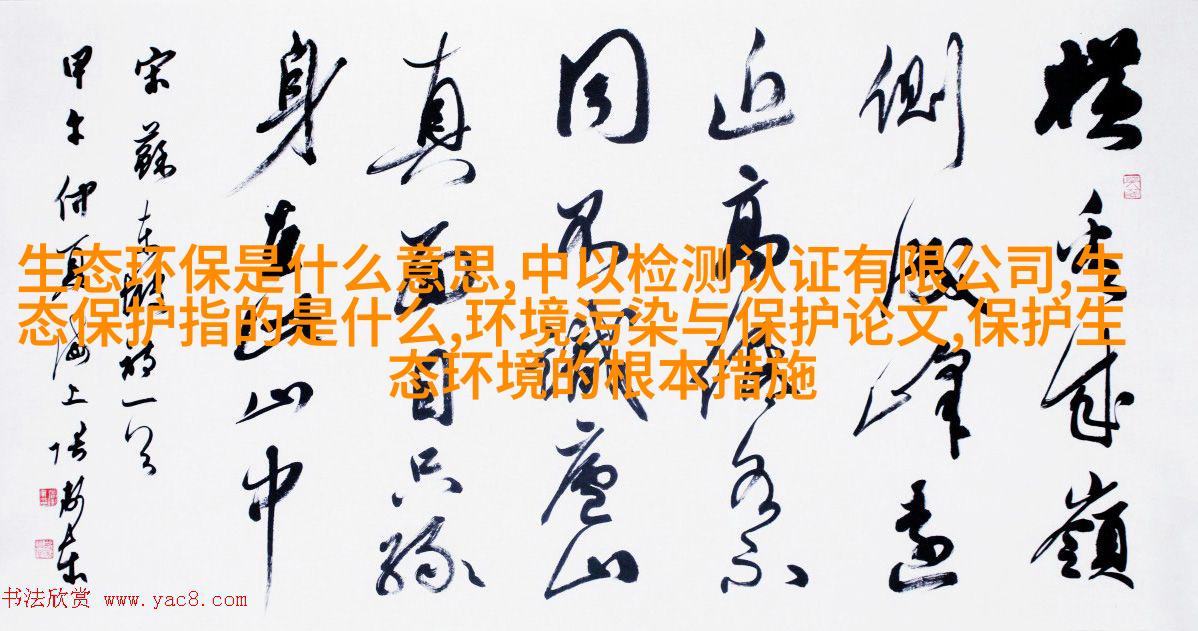 横看成嶺
側成峰遠
近高低各不
同不識廬山
真面目只緣
身在此山中
宋蘇東坡詩一首
甲午仲夏海上張
生态环保是什么意思,中以检测认证有限公司,生
态保护指的是什么,环境污染与保护论文,保护生
态环境的根本措施
书法欣赏 www.yac8.com